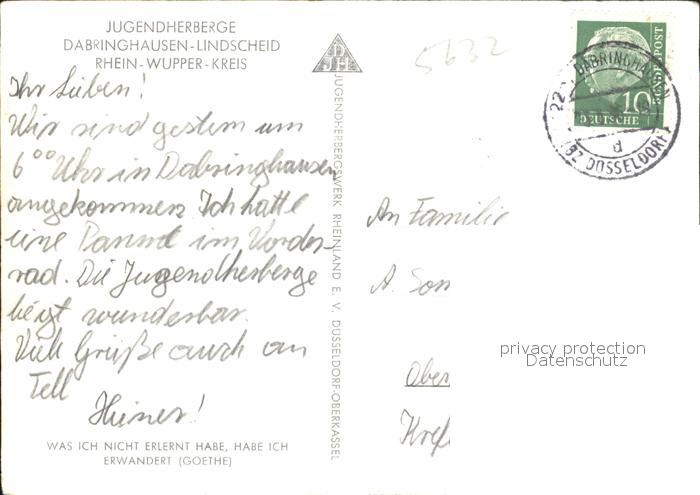 JUGENDHERBERGE
DABRINGHAUSEN-LINDSCHEID
RHEIN-WUPPER-KREIS
Ihr Lieben!
Wir sind gestern um
6⁰⁰ Uhr in Dabringhausen
angekommen. Ich hatte
eine Panne im Vorder-
rad. Die Jugendherberge
liegt wunderbar.
Viele Grüße auch an
Tell
WAS ICH NICHT ERLERNT HABE, HABE ICH
ERWANDERT (GOETHE)
DJH
JUGENDHERBERGSWERK RHEINLAND E. V. DÜSSELDORF-OBERKASSEL
5632
10
DEUTSCHE
BUNDESPOST
22 DABRINGHAUSEN
d
(BZ DÜSSELDORF)
An Familie
A. Son
Ober
Kref
privacy protection
Datenschutz